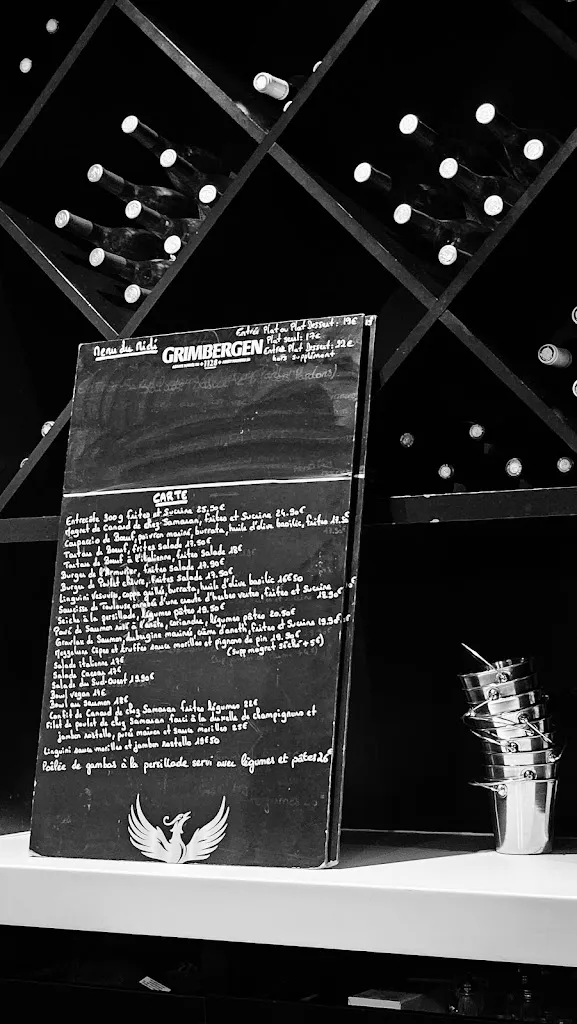 Menu du Midi
GRIMBERGEN
1128
Entrée Plat ou Plat Dessert : 19€
Plat seul : 17€
Entrée Plat Dessert : 22€
hors supplément
CARTE
Entrecôte 300g frites et Sucrine 25.90€
Magret de Canard de chez Samaran, frites et Sucrine 24.90€
Carpaccio de Bœuf, poivron mariné, burrata, huile d'olive basilic, frites
Tartare de Bœuf, frites salade 17.90€
Tartare de Bœuf à l'italienne, frites salade 18€
Burger de l'Armurier, frites salade 17.90€
Burger de Poulet chèvre, frites salade 17.90€
Linguini Vésuvio, coppa grillée, burrata, huile d'olive basilic 16€50
Saucisse de Toulouse, frites et Sucrine 18.90€
Seiche à la persillade, légumes pâtes 19.50€
Pavé de Saumon, coriandre, légumes pâtes 20.50€
Gravlax de Saumon, aubergine marinée, crème d'aneth, frites et Sucrine 19.90€
Mezzelune Cèpes et truffes sauce morilles et pignons de pin 19.90€
(Supp magret séché + 5€)
Salade italienne 17€
Salade Caesar 17€
Salade du Sud-Ouest 19.90€
Bowl vegan 17€
Bowl au saumon 18€
Confit de Canard de chez Samaran frites légumes 22€
Filet de poulet de chez Samaran farci à la duxelle de champignons et
jambon, purée maison et sauce morilles 25€
Linguini sauce morilles et jambon 19€50
Poêlée de gambas à la persillade servi avec légumes et pâtes 26€